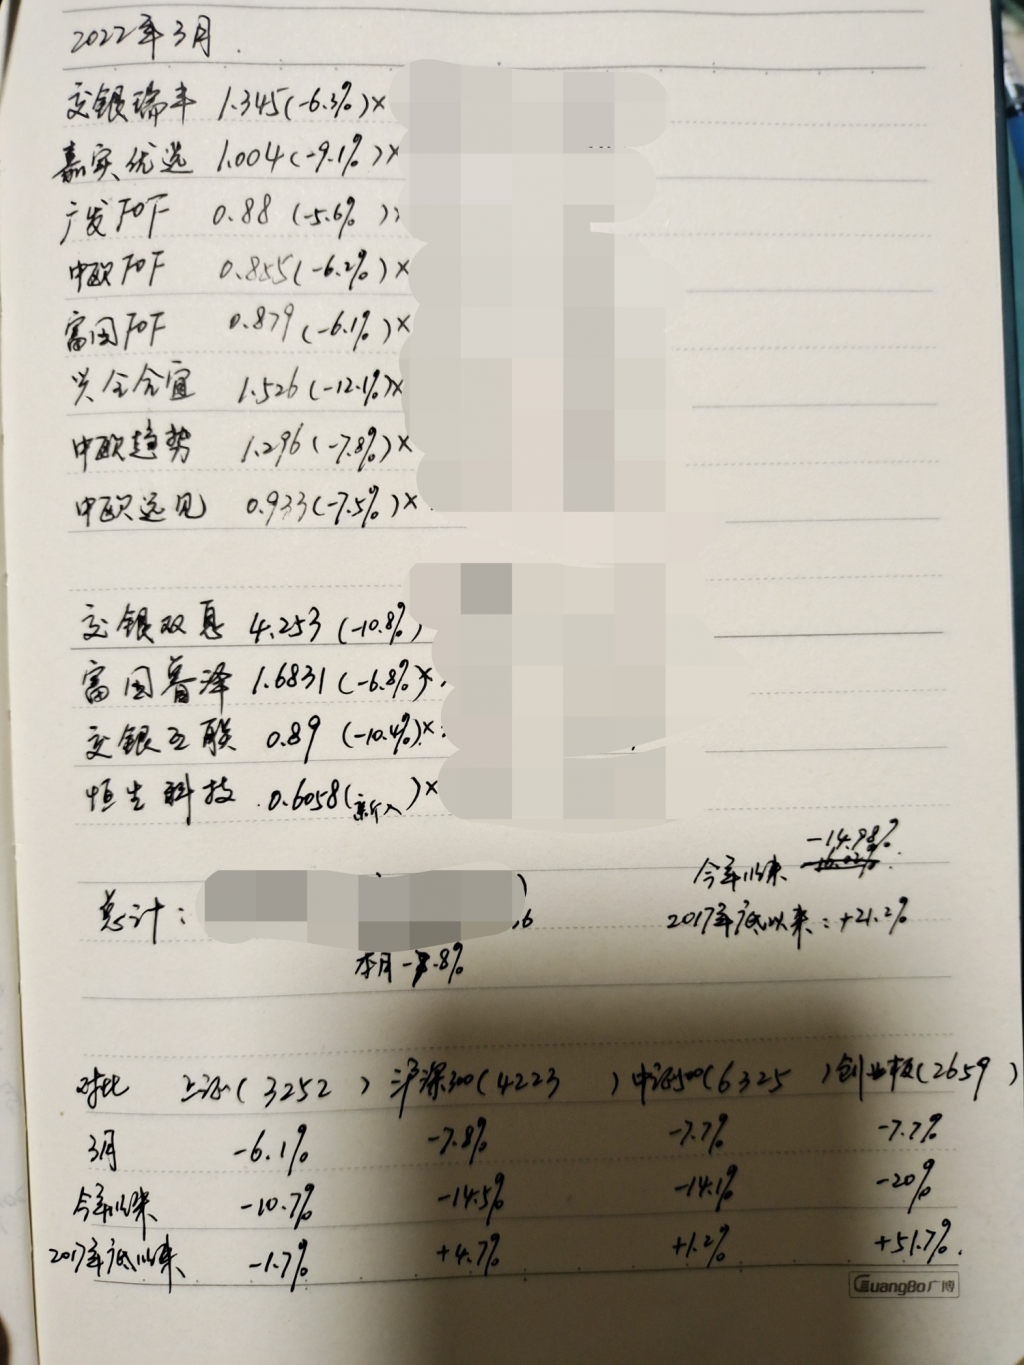 2022年3月.
交银瑞丰 1.345(-6.3%)×
嘉实优选 1.004(-9.1%)×
广发FOF 0.88(-5.6%)
中欧FOF 0.855(-6.2%)×
富国FOF 0.879(-6.1%)×
兴全合宜 1.526(-12.1%)×
中欧趋势 1.296(-7.8%)×
中欧远见 0.933(-7.5%)×
交银双息 4.253(-10.8%)
富国睿泽 1.6831(-6.8%)×
交银互联 0.89(-10.4%)×
恒生科技 0.6058(新介入)×
-14.98%
今年以来
总计:
2017年底以来:+21.2%
本月 -8%
对比 上证(3252) 沪深300(4223) 中证500(6325) 创业板(2659)
3月 -6.1% -7.8% -7.7% -7.7%
今年以来 -10.7% -14.5% -14.1% -20%
2017年底以来 -1.7% +4.7% +1.2% +51.7%.
GuangBo广博